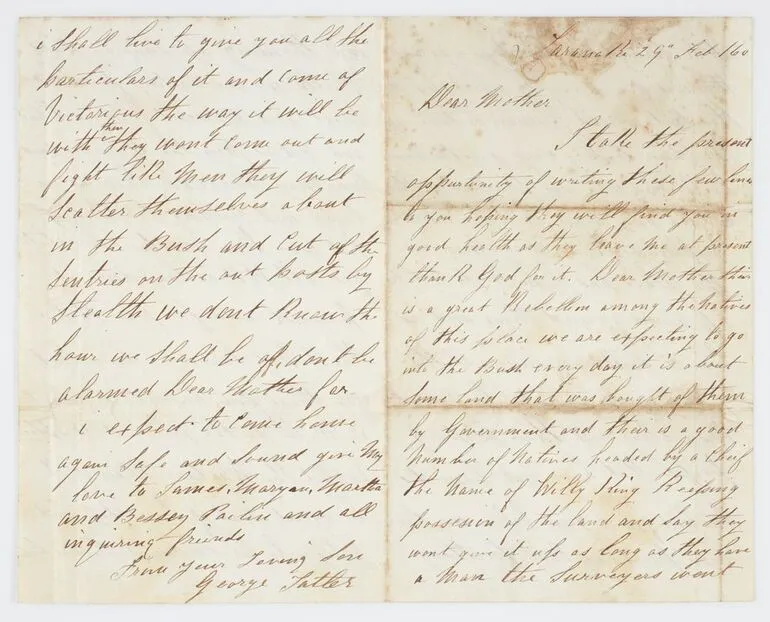 Taranaki 29" Feb /60
Dear Mother
I take the present
oppurtunity of writing these few lines
to you hoping they will find you in
good health as they leave me at present
thank God for it. Dear Mother their
is a great Rebellion among the Natives
of this place we are expecting to go
into the Bush every day it is about
some land that was bought of them
by Government and their is a good
number of Natives headed by a Cheif
the name of Willy King Keeping
possesion of the land and say they
wont give it up as long as they have
a man the Surveyers went
i shall live to give you all the
particulars of it and come of
Victorious the way it will be
with them they wont come out and
fight like men they will
scatter themselves about
in the Bush and Cut of the
sentries on the out posts by
Stealth we dont Know the
hour we shall be off, dont be
alarmed Dear Mother for
i expect to come home
again safe and sound give My
love to James, Maryan, Martha
and Bessey and all
inquiring friends
From your Loving Son
George